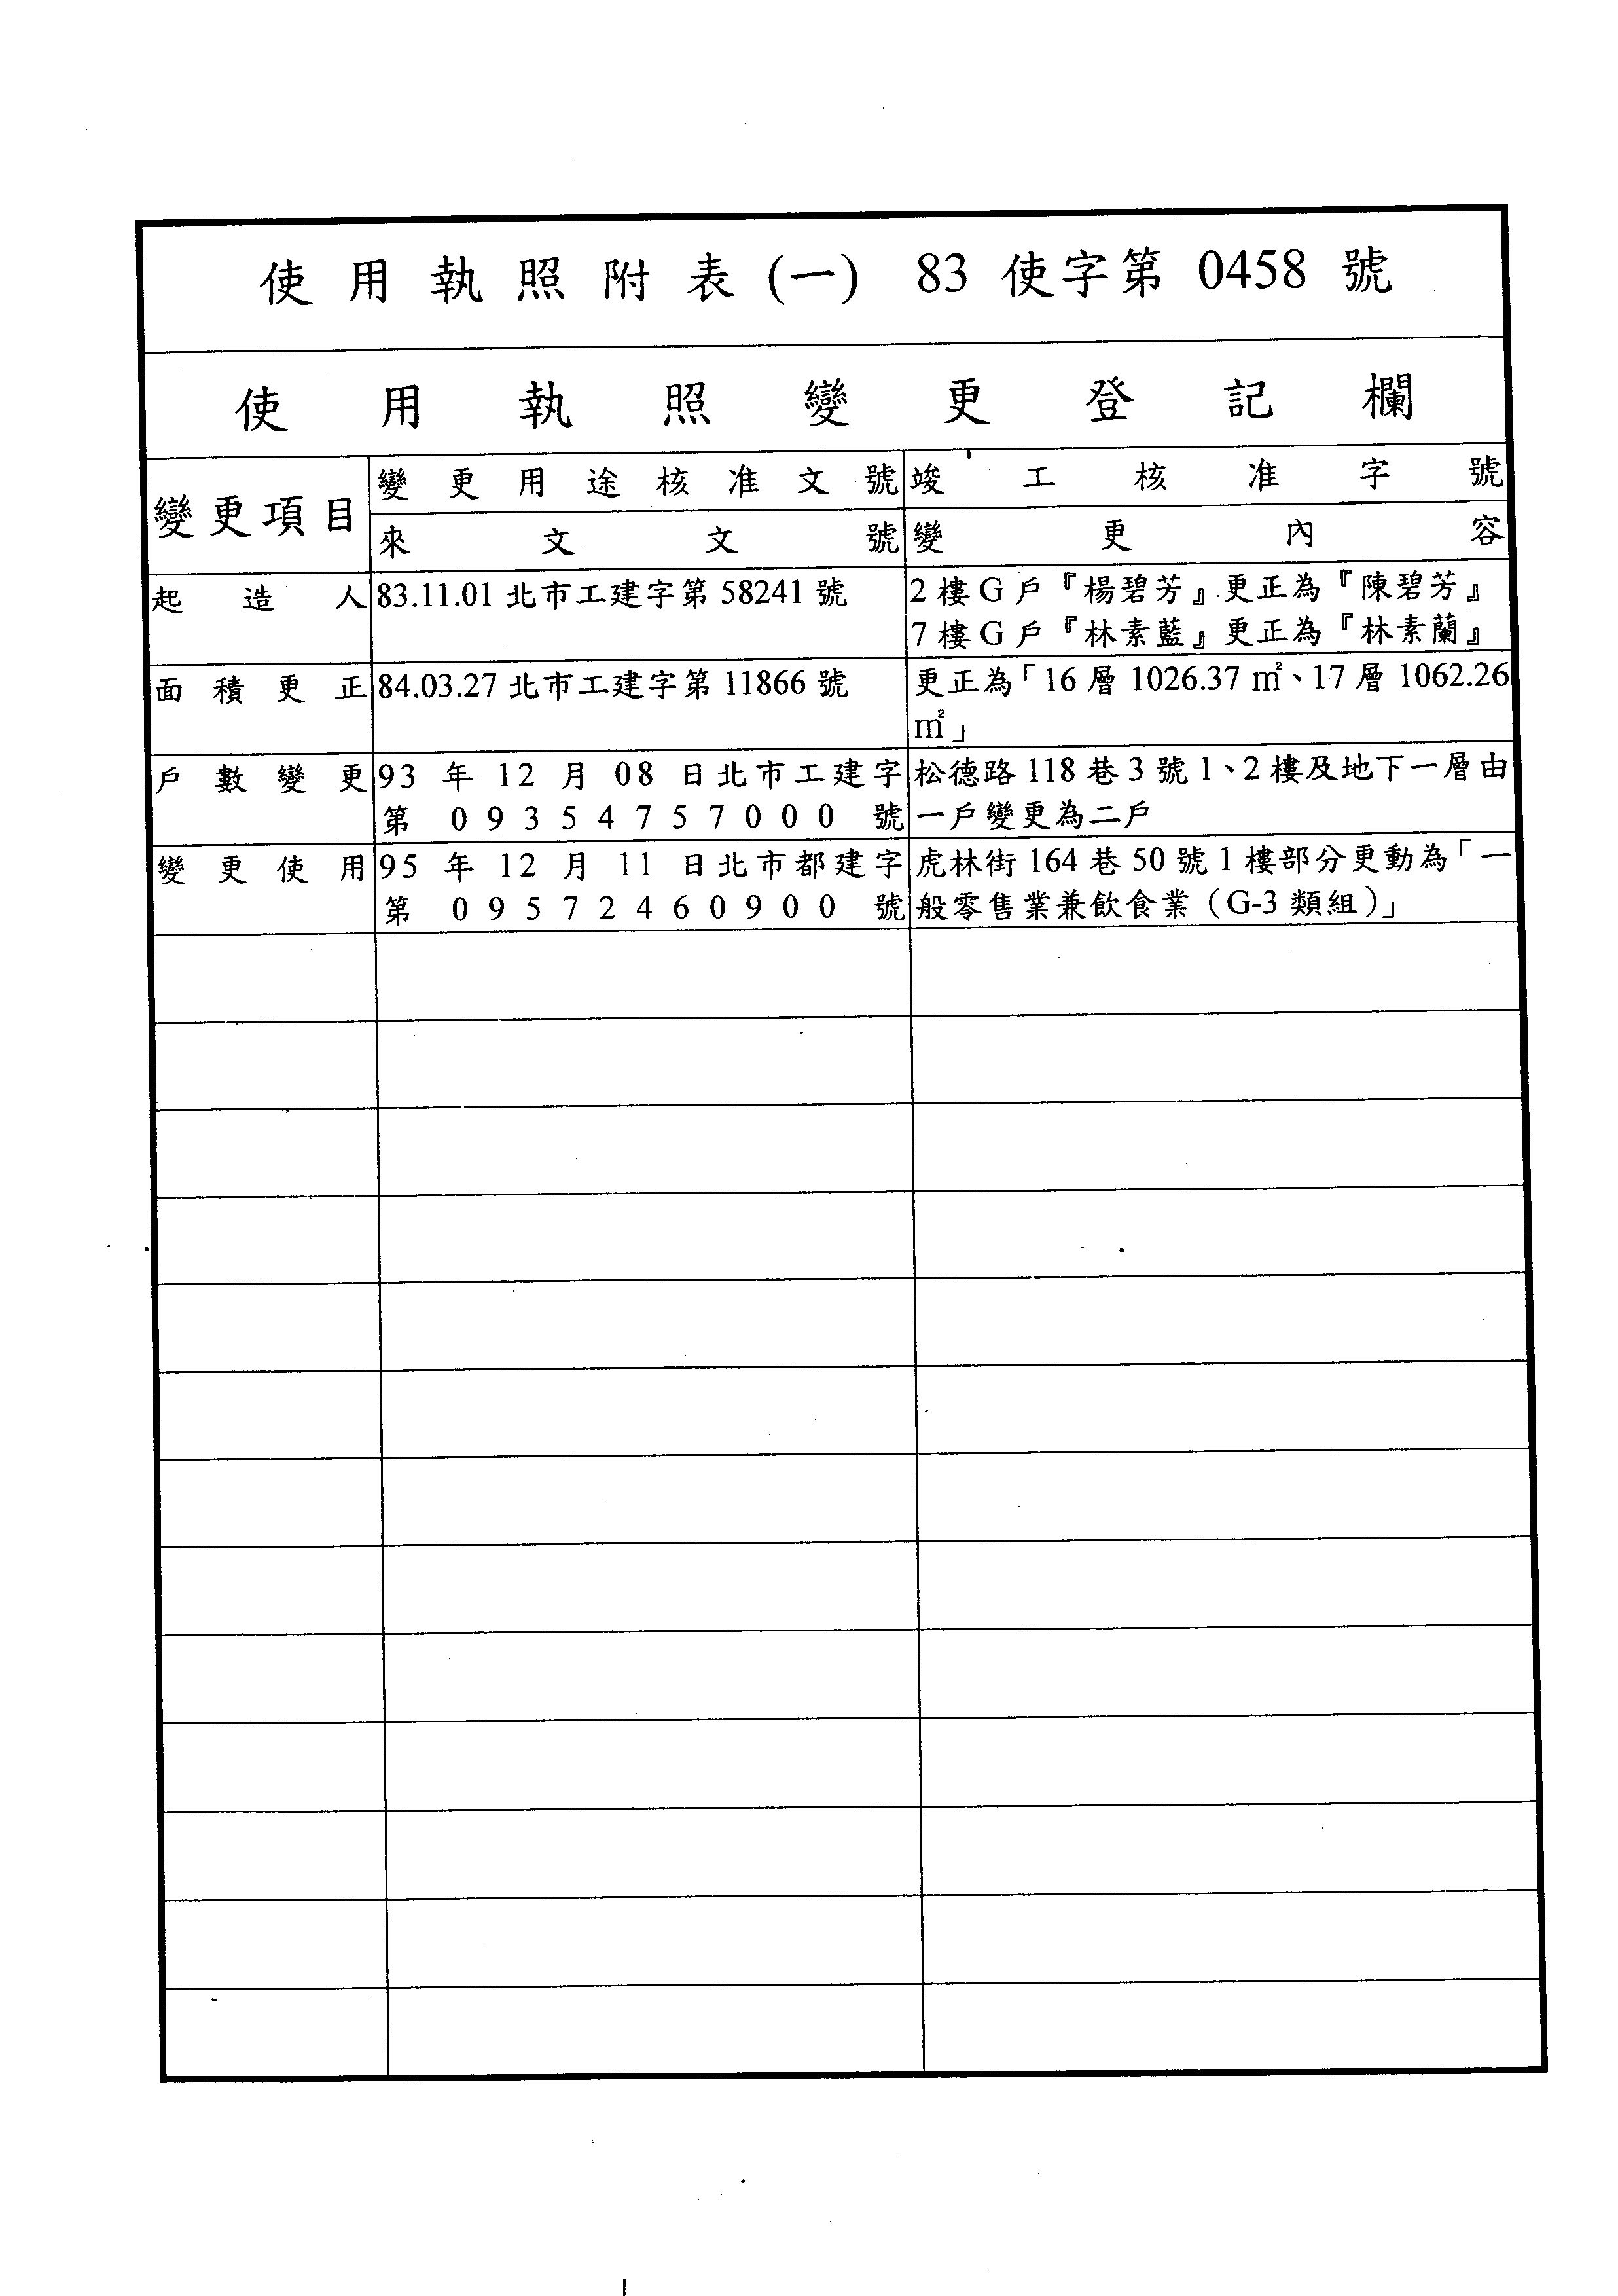 使用執照附表(一) 83 使字第 0458 號
使用執照變更登記欄
變更項目
變更用途核准文號 竣工核准字號
來文文號 變更內容
起造人 83.11.01 北市工建字第 58241 號 2 樓 G 戶『楊碧芳』更正為『陳碧芳』
7 樓 G 戶『林素藍』更正為『林素蘭』
面積更正 84.03.27 北市工建字第 11866 號 更正為「16 層 1026.37 ㎡、17 層 1062.26
㎡」
戶數變更 93 年 12 月 08 日北市工建字 松德路 118 巷 3 號 1、2 樓及地下一層由
第 09354757000 號 一戶變更為二戶
變更使用 95 年 12 月 11 日北市都建字 虎林街 164 巷 50 號 1 樓部分更動為「一
第 09572460900 號 般零售業兼飲食業（G-3 類組）」